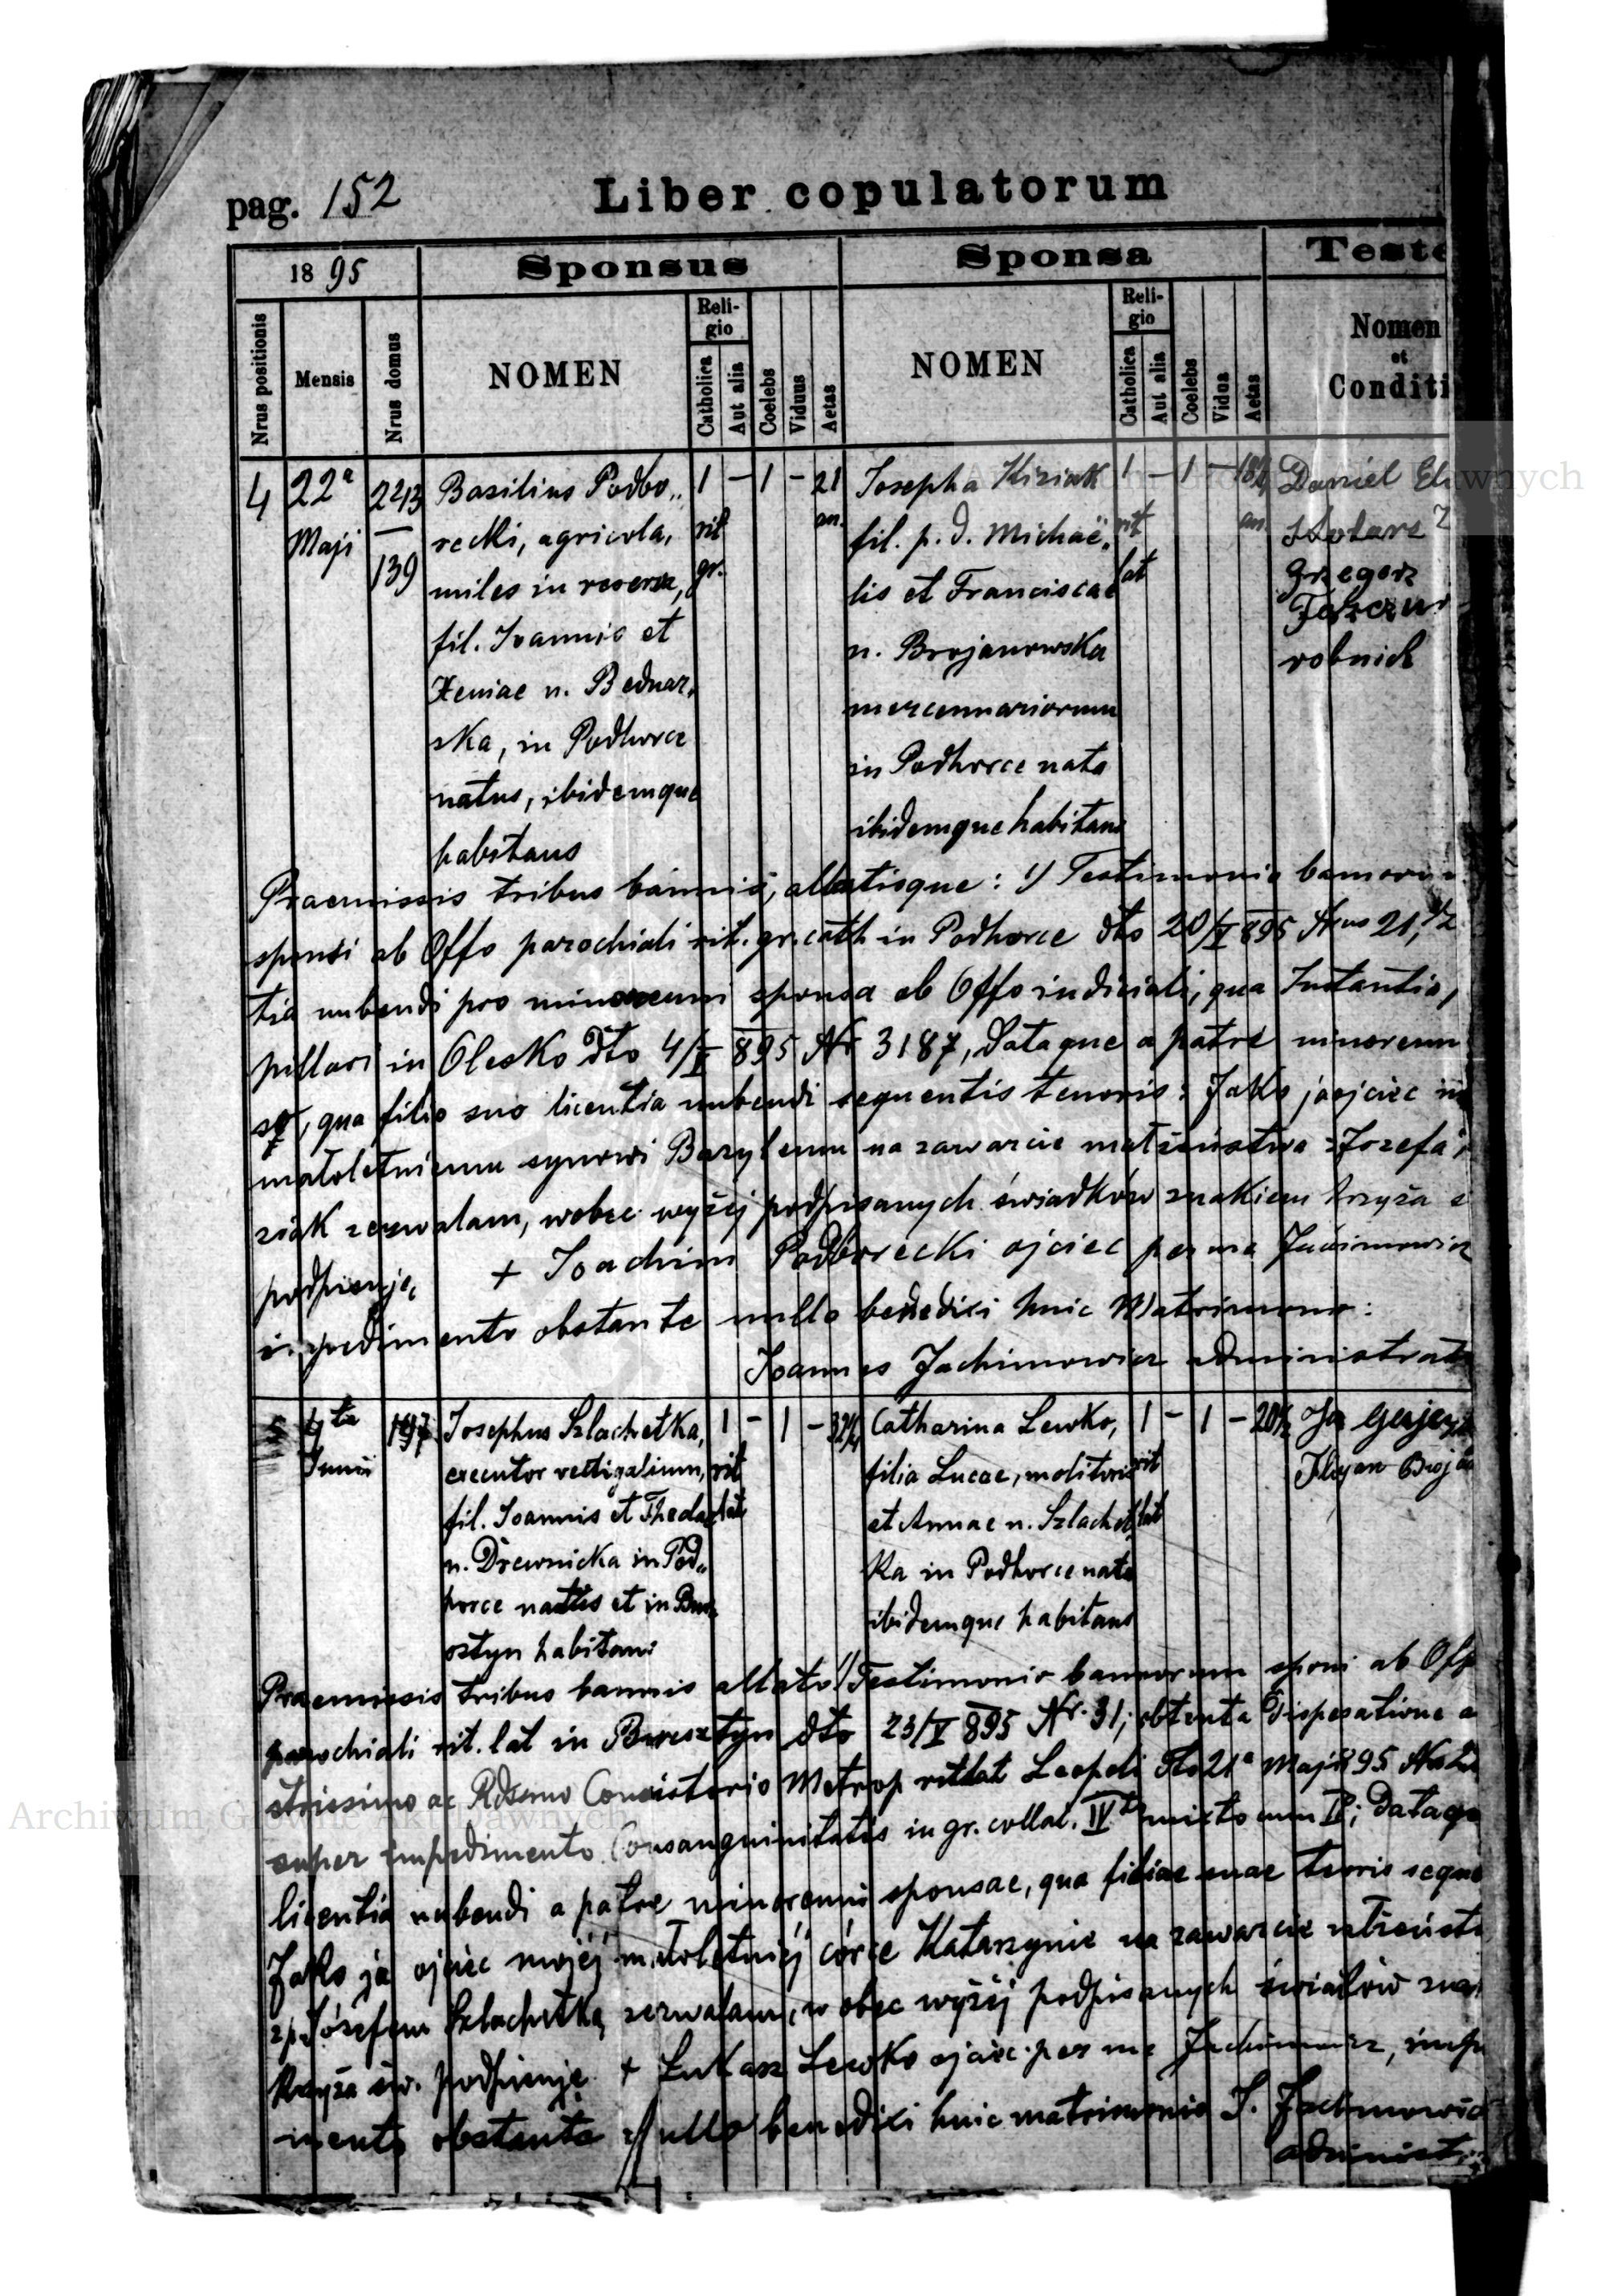 pag. 152
Liber copulatorum
1895
Sponsus
Sponsa
Teste
Nrus positionis
Mensis
Nrus domus
NOMEN
Religio
Catholica
Aut alia
Coelebs
Viduus
Aetas
NOMEN
Religio
Catholica
Aut alia
Coelebs
Vidua
Aetas
Nomen
et
Conditi
4
22ª
Maji
139
Basilius Podbo„
recki, agricola,
miles in reserva,
fil. Ioannis et
Xeniae n. Bednar„
ska, in Podhorce
natus, ibidemque
habitans
1 – 1 – 21
rit an.
gr.
Josepha Kiziak
fil. p. d. Michaë„
lis et Franciscae
n. Brojanowska
mercennariorum
in Podhorce nata
ibidemque habitans
1 – 1 –
rit an.
lat
Daniel
Grzegorz
robnik
Praemissis tribus bannis, allatisque: 1) Testimonio bannorum
sponsi ab Offo parochiali rit. gr. cath in Podhorce dto 20/V 895 Nrus 21,
tia nubendi pro minorenni sponsa ab Offo iudiciali, qua Instantia
pillari in Olesko dto 4/V 895 Nr 3187, Dataque a patre minorenni
qua filio suo licentia nubendi sequentis tenoris: Jako ja ojciec
małoletniemu synowi Bazylemu na zawarcie małżeństwa z Józefą
ziak zezwalam, wobec wyżej podpisanych świadków znakiem krzyża
podpisuję + Ioachim Podborecki ojciec per me Jachimowicz
impedimento obstante nullo benedixi huic Matrimonio:
Ioannes Jachimowicz administrato
5
4ta
Junii
197
Josephus Szlachetka,
executor vectigalium,
fil. Ioannis et Theclae
n. Drewnicka in Pod„
horce natus et in Bur„
sztyn habitans
1 – 1 –
rit
lat
Catharina Lewko,
filia Lucae, molitoris
et Annae n. Szlachet
ka in Podhorce nata
ibidemque habitans
1 – 1 – 20½
rit
lat
Praemissis tribus bannis allato 1) Testimonio bannorum sponsi ab Off
parochiali rit. lat in Bursztyn dto 23/V 895 Nr. 31, obtenta Dispesatione a
strissimo ac Rdssmo Consistorio Metrop rit lat Leopoli dto 21ª Maji 895
super impedimento Consanguinitatis in gr. collat. IVto mixto cum; Dataqu
licentia nubendi a patre minorenni sponsae, qua filiae suae tenoris seque
Jako ja ojciec mojéj małoletniéj córce Katarzynie na zawarcie
z p. Józefem Szlachetką zezwalam, w obec wyżéj podpisanych
krzyża św. podpisuję. + Łukasz Lewko ojciec per me Jachimowicz, imp
mento obstante Nullo benedixi huic matrimonio I. Jachimowic
administ
Archiwum Główne Akt Dawnych